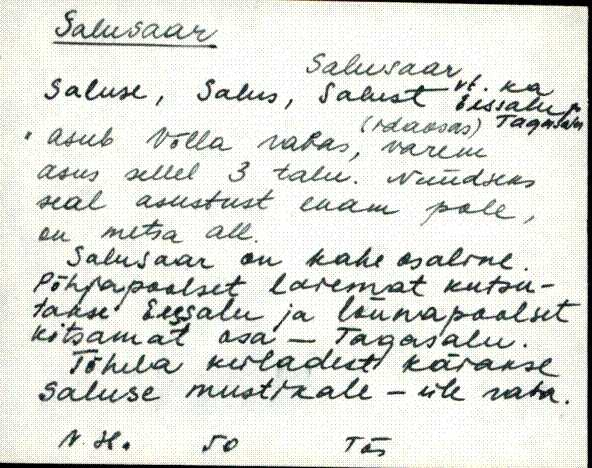 Salusaar
Salusaar
Saluse, Salus, Salust vt. ka
Eessalu ja
(idaosas) Tagasalu
asub Võlla rabas, varem
asus sellel 3 talu. Nüüdseks
seal asustust enam pole,
on metsa all.
Salusaar on kahe osaline.
Põhjapoolset laiemat kutsu-
takse Eessalu ja lõunapoolset
kitsamat osa – Tagasalu.
Tõhela küladest käiakse
Saluse mustikale – üle raba.
N. H. 50 Tõs